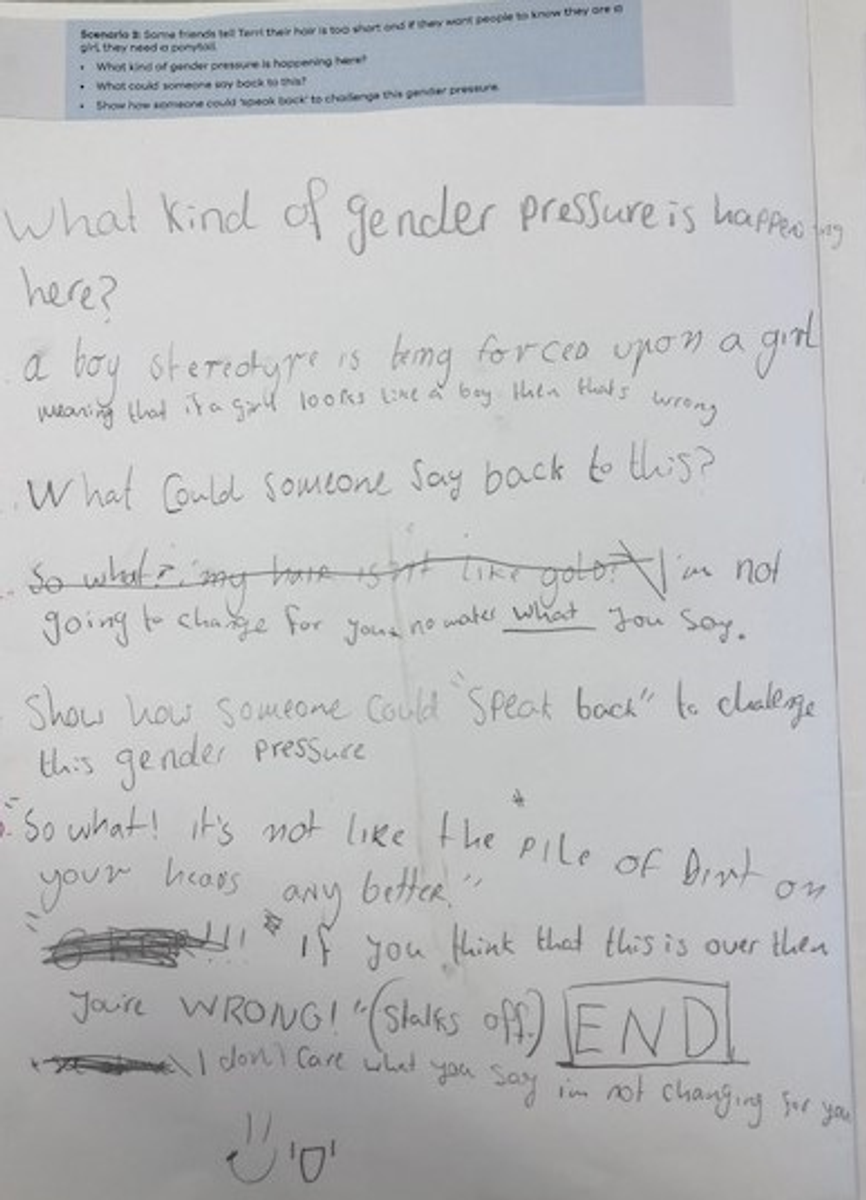 Scenario 2: Some friends tell Terri their hair is too short and if they want people to know they are a
girl, they need a ponytail.
• What kind of gender pressure is happening here?
• What could someone say back to this?
• Show how someone could 'speak back' to challenge this gender pressure.
What kind of gender pressure is happening
here?
a boy stereotype is being forced upon a girl
meaning that if a girl looks like a boy then thats wrong
What Could Someone Say back to this?
So what? my hair isn't like gold? I'm not
going to change for you no mater what you say.
Show how someone could "Speak back" to challenge
this gender pressure
"So what! it's not like the PILE OF Dirt on
your heads any better!"
!!! * If you think that this is over then
you're WRONG!" (Stalks off.) END
I don't care what you say im not changing for you